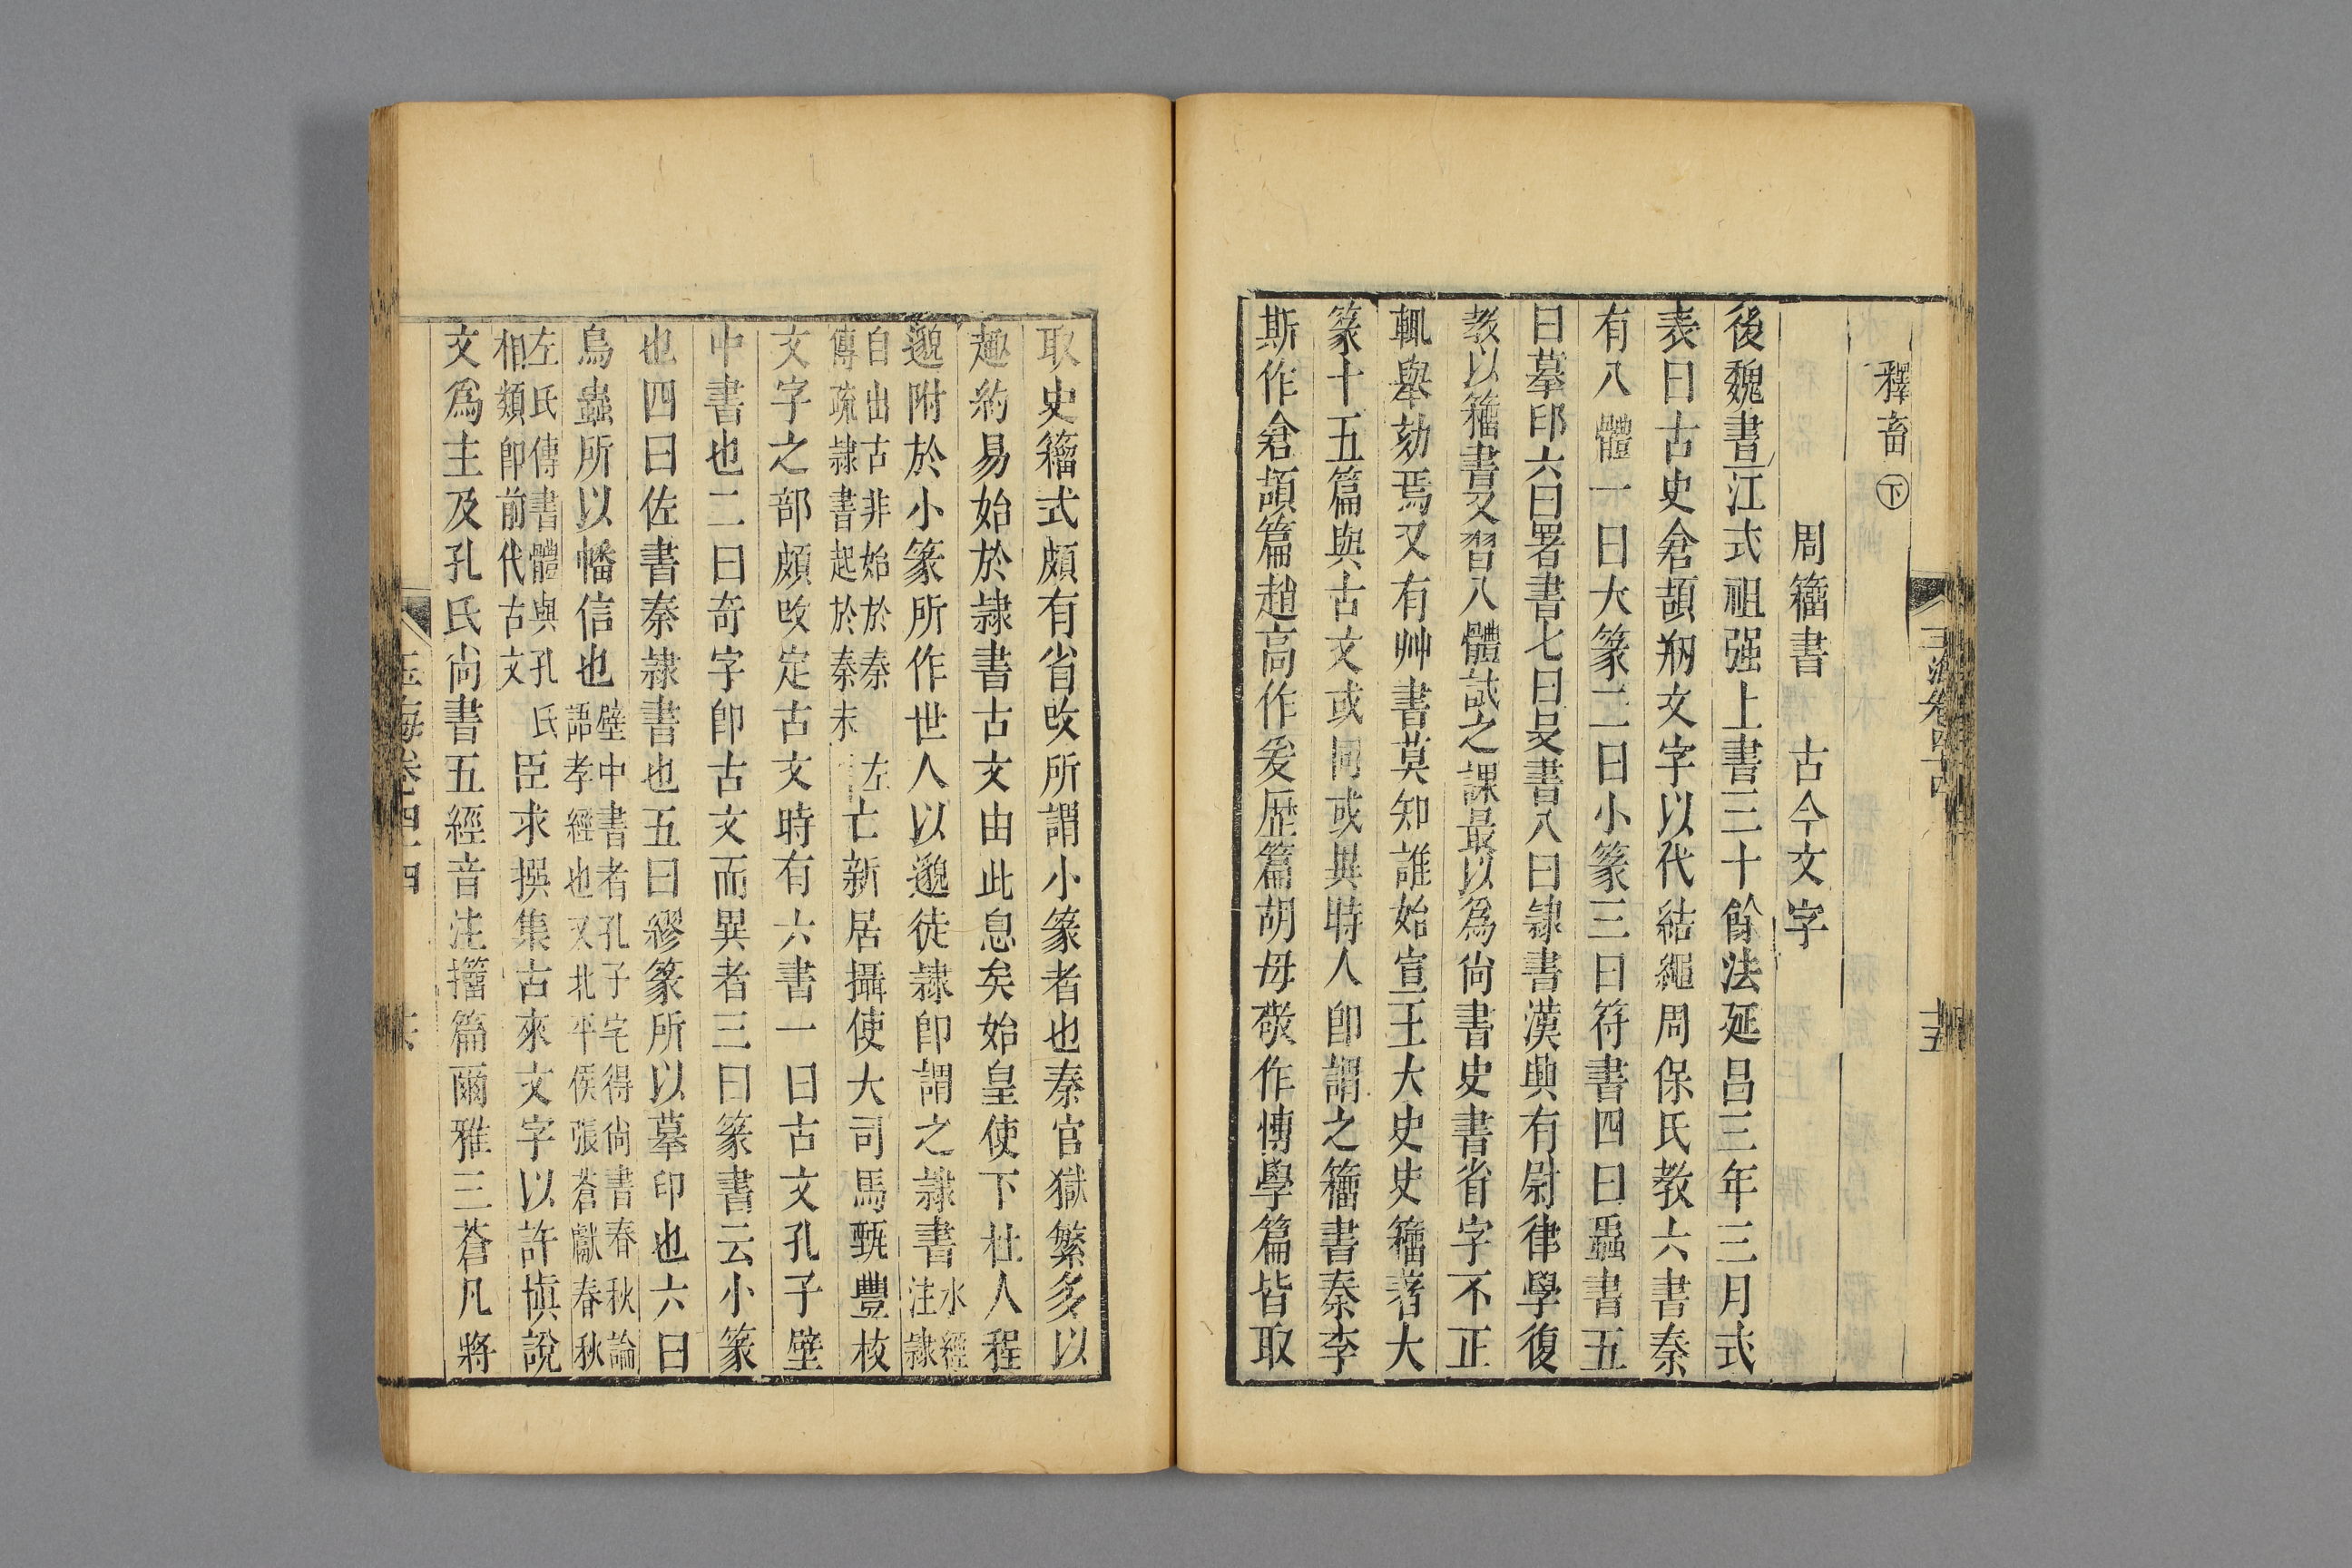 釋畜下
周籀書　古今文字
後魏書江式祖强上書三十餘法延昌三年三月式
表曰古史倉頡剏文字以代結繩周保氏教六書秦
有八體一曰大篆二曰小篆三曰符書四曰蟲書五
曰摹印六曰署書七曰殳書八曰隷書漢興有尉律學復
教以籀書又習八體試之課最以爲尚書史書省字不正
輒舉劾焉又有艸書莫知誰始宣王大史史籀著大
篆十五篇與古文或同或異時人卽謂之籀書秦李
斯作倉頡篇趙高作爰歷篇胡母敬作慱學篇皆取
取史籀式頗有省改所謂小篆者也秦官獄繁多以
趣約易始於隷書古文由此息矣始皇使下杜人程
邈附於小篆所作世人以邈徒隷卽謂之隷書水經注隷
自出古非始於秦左傳疏隷書起於秦末亡新居攝使大司馬甄豐校
文字之部頗改定古文時有六書一曰古文孔子壁
中書也二曰奇字卽古文而異者三曰篆書云小篆
也四曰佐書秦隷書也五曰繆篆所以摹印也六曰
鳥蟲所以幡信也壁中書者孔子宅得尚書春秋論語孝經也又北平侯張蒼獻春秋
左氏傳書體與孔氏相類卽前代古文臣求撰集古來文字以許慎說
文爲主及孔氏尚書五經音注籀篇爾雅三蒼凡將
玉海卷四十四
十五
玉海卷四十四